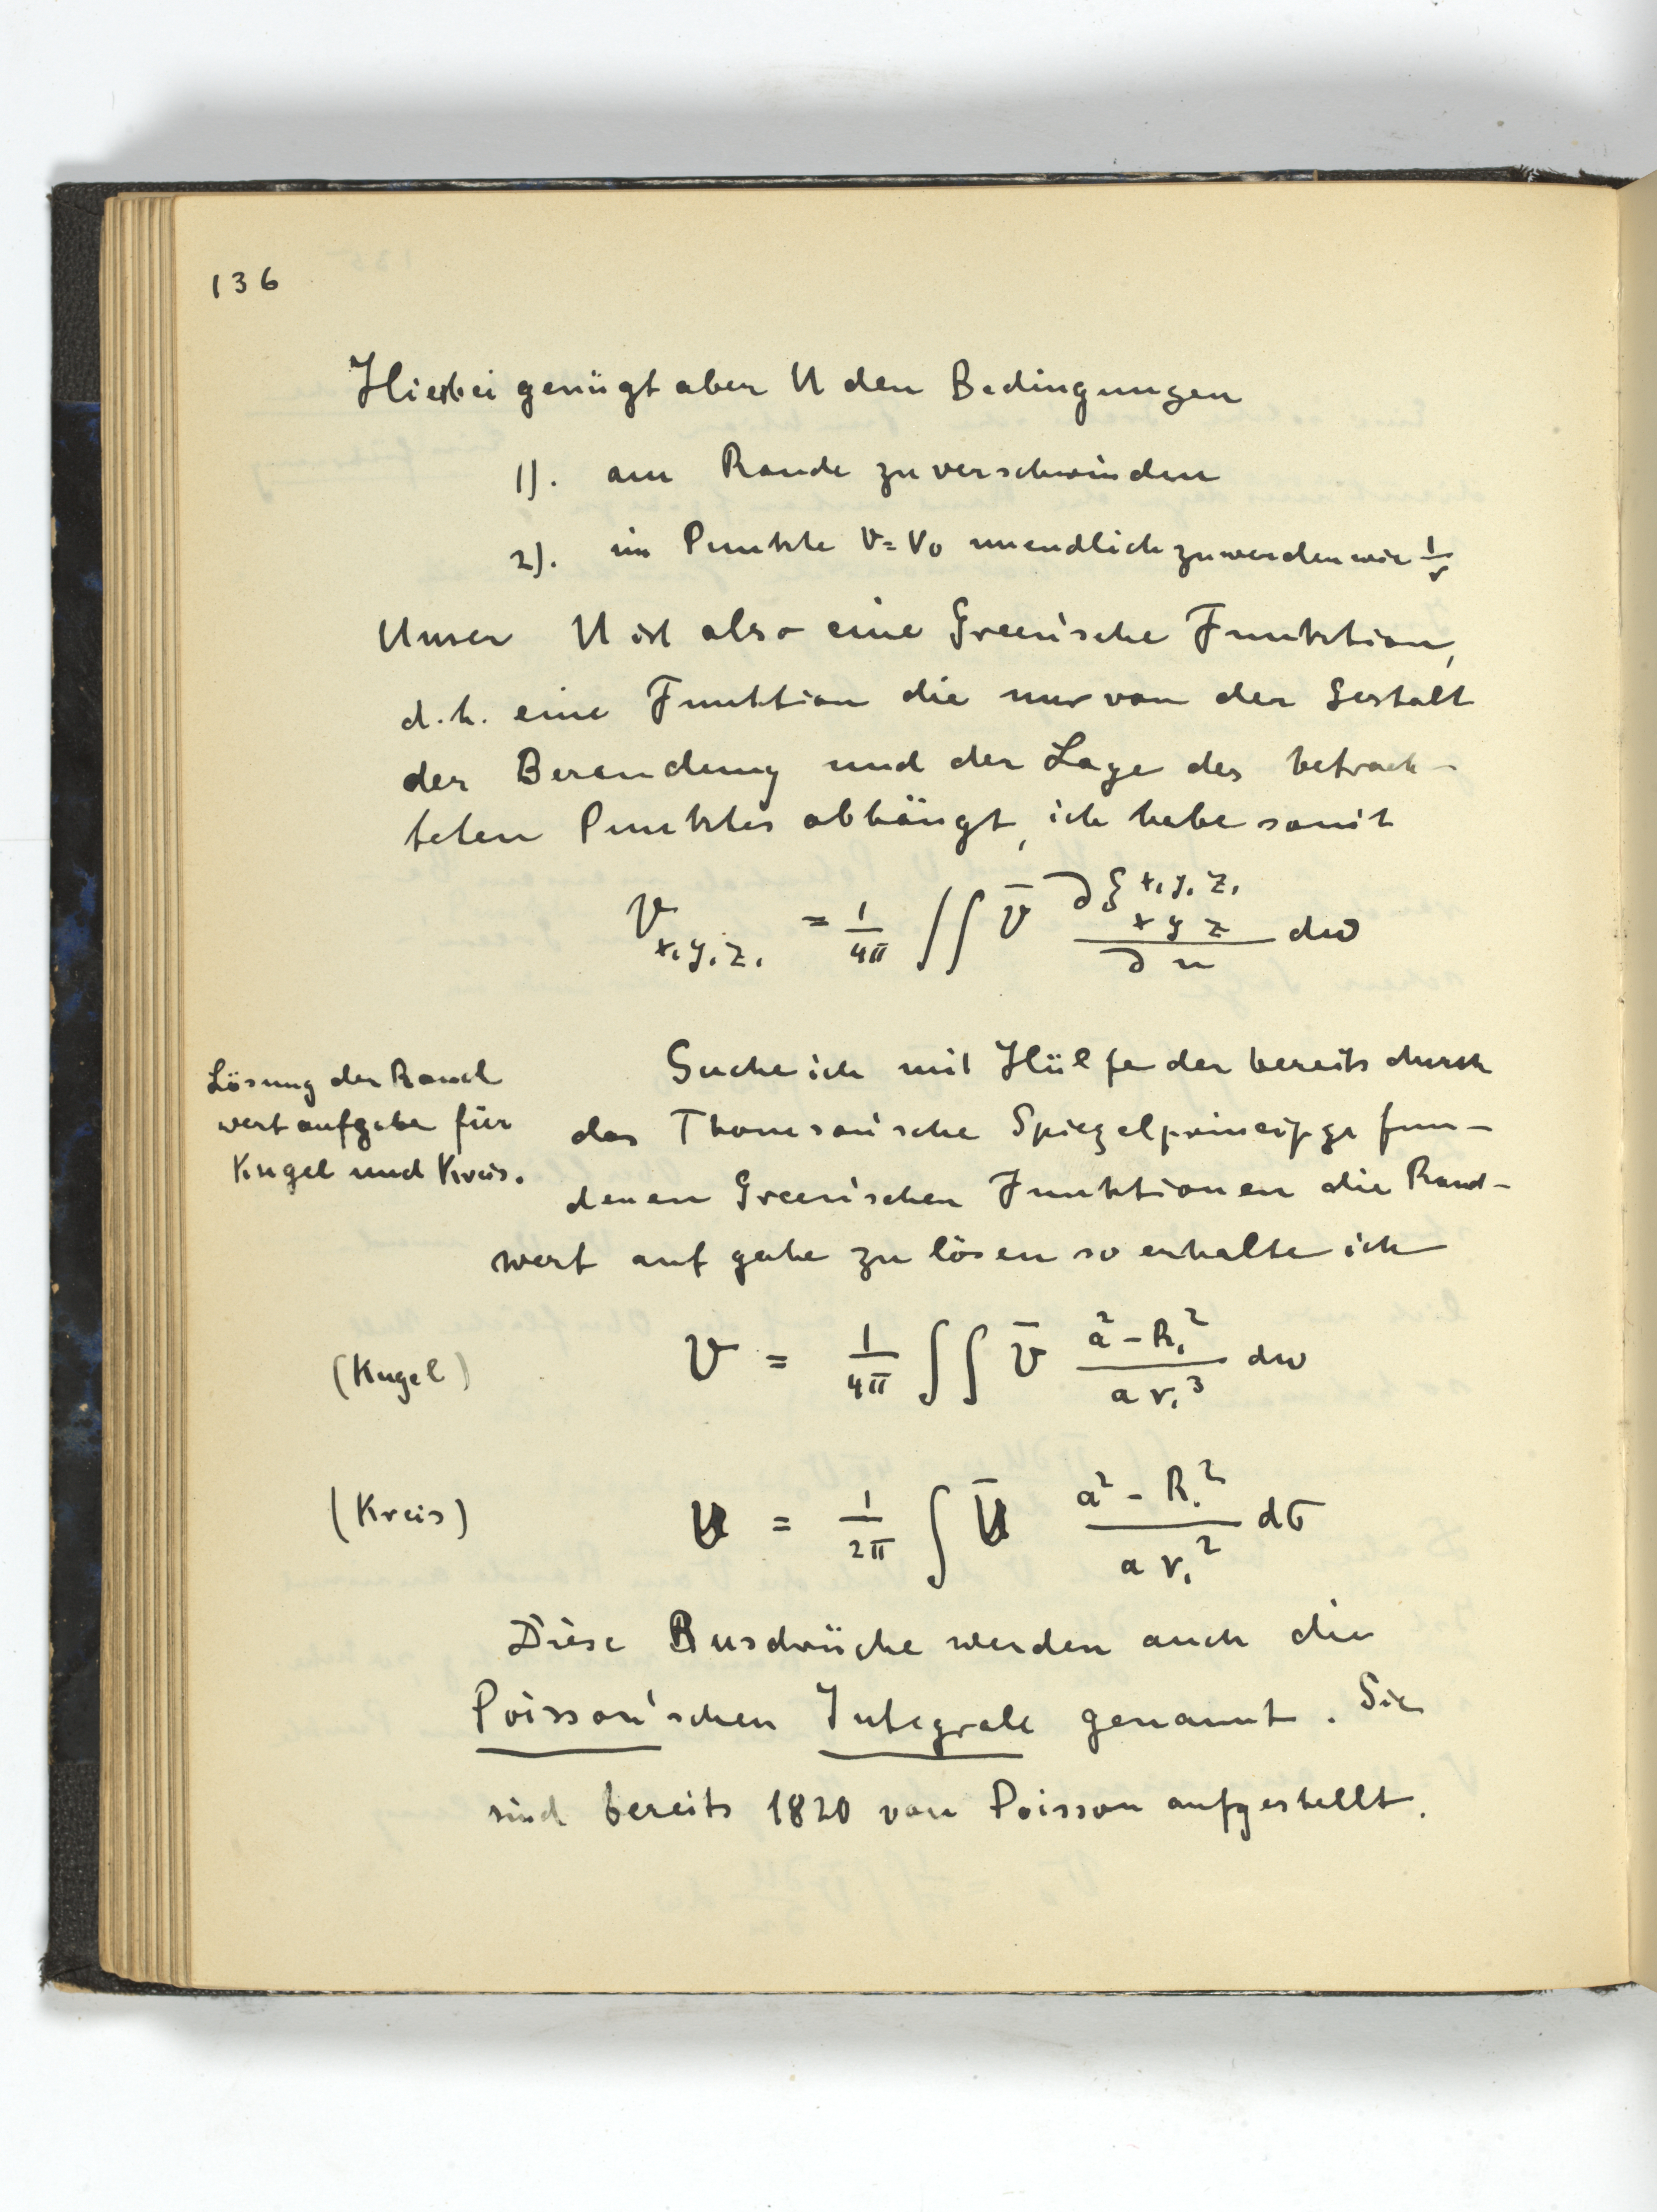 136
Hierbei genügt aber U den Bedingungen
1). am Rande zu verschwinden
2). im Punkte V=V₀ unendlich zu werden wie 1/r
Unser U ist also eine Green'sche Funktion,
d.h. eine Funktion die nur von der Gestalt
der Berandung und der Lage des betrach-
teten Punktes abhängt, ich habe somit
V_{x₁y₁z₁} = 1/4π ∫∫ V̄ ∂G^{x₁y₁z₁}_{x y z}/∂n dω
Lösung der Rand
wertaufgabe für
Kugel und Kreis.
Suche ich mit Hülfe der bereits durch
das Thomson'sche Spiegelprincip ge fun-
denen Green'schen Funktionen die Rand-
wert aufgabe zu lösen so erhalte ich
(Kugel) V = 1/4π ∫∫ V̄ (a² - R₁²)/(a r₁³) dω
(Kreis) U = 1/2π ∫ Ū (a² - R₁²)/(a r₁²) dσ
Diese Ausdrücke werden auch die
Poisson'schen Integrale genannt. Sie
sind bereits 1820 von Poisson aufgestellt.